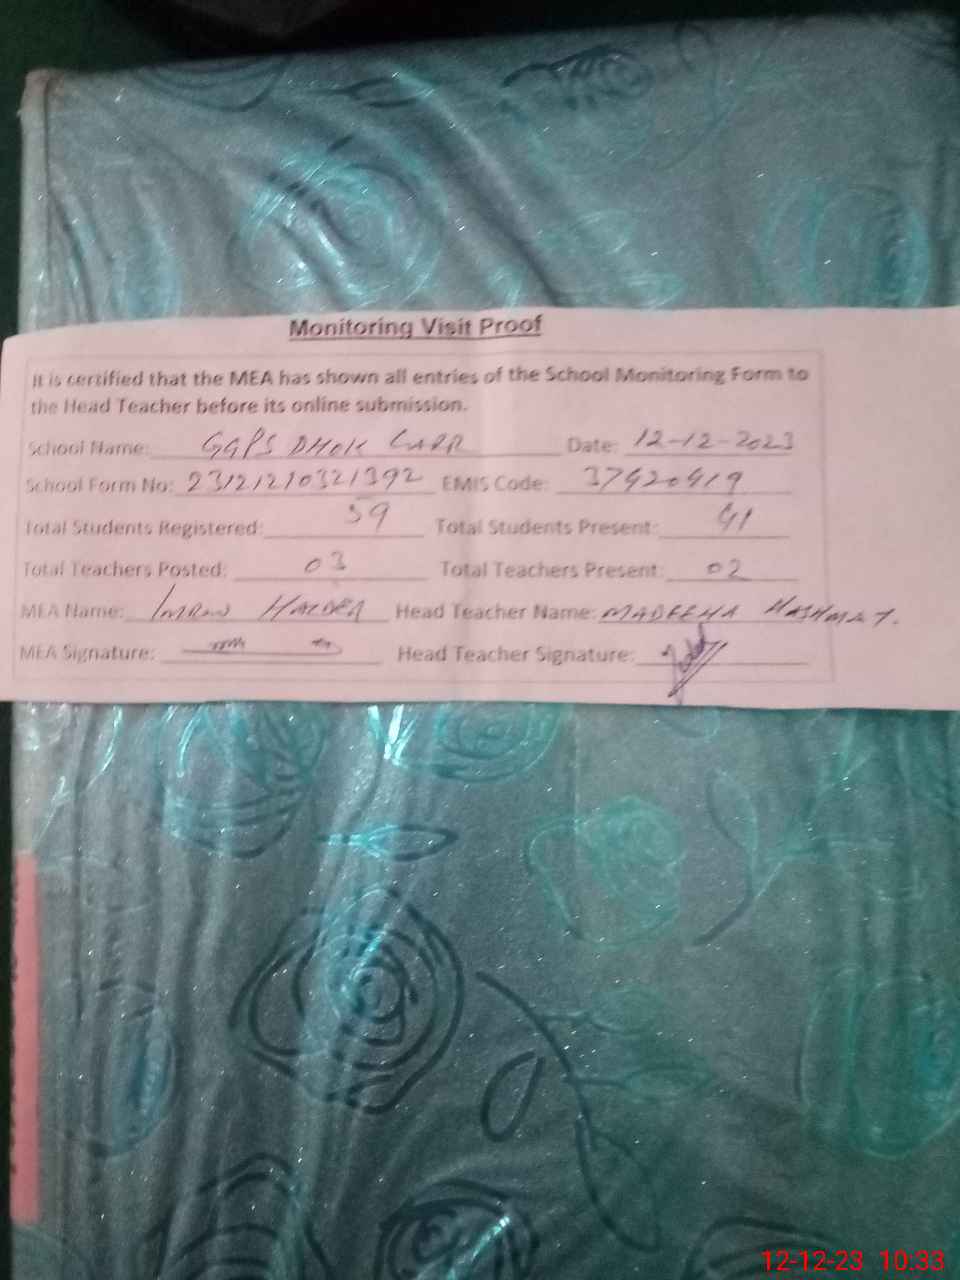 Monitoring Visit Proof
It is certified that the MEA has shown all entries of the School Monitoring Form to
the Head Teacher before its online submission.
School Name: GGPS DHOK Date: 12-12-2023
School Form No: 23121210321392 EMIS Code: 37420419
Total Students Registered: 59 Total Students Present: 41
Total Teachers Posted: 03 Total Teachers Present: 02
MEA Name: IMRAN HAIDER Head Teacher Name: MADEEHA HASHMAT.
MEA Signature: Head Teacher Signature:
12-12-23 10:33